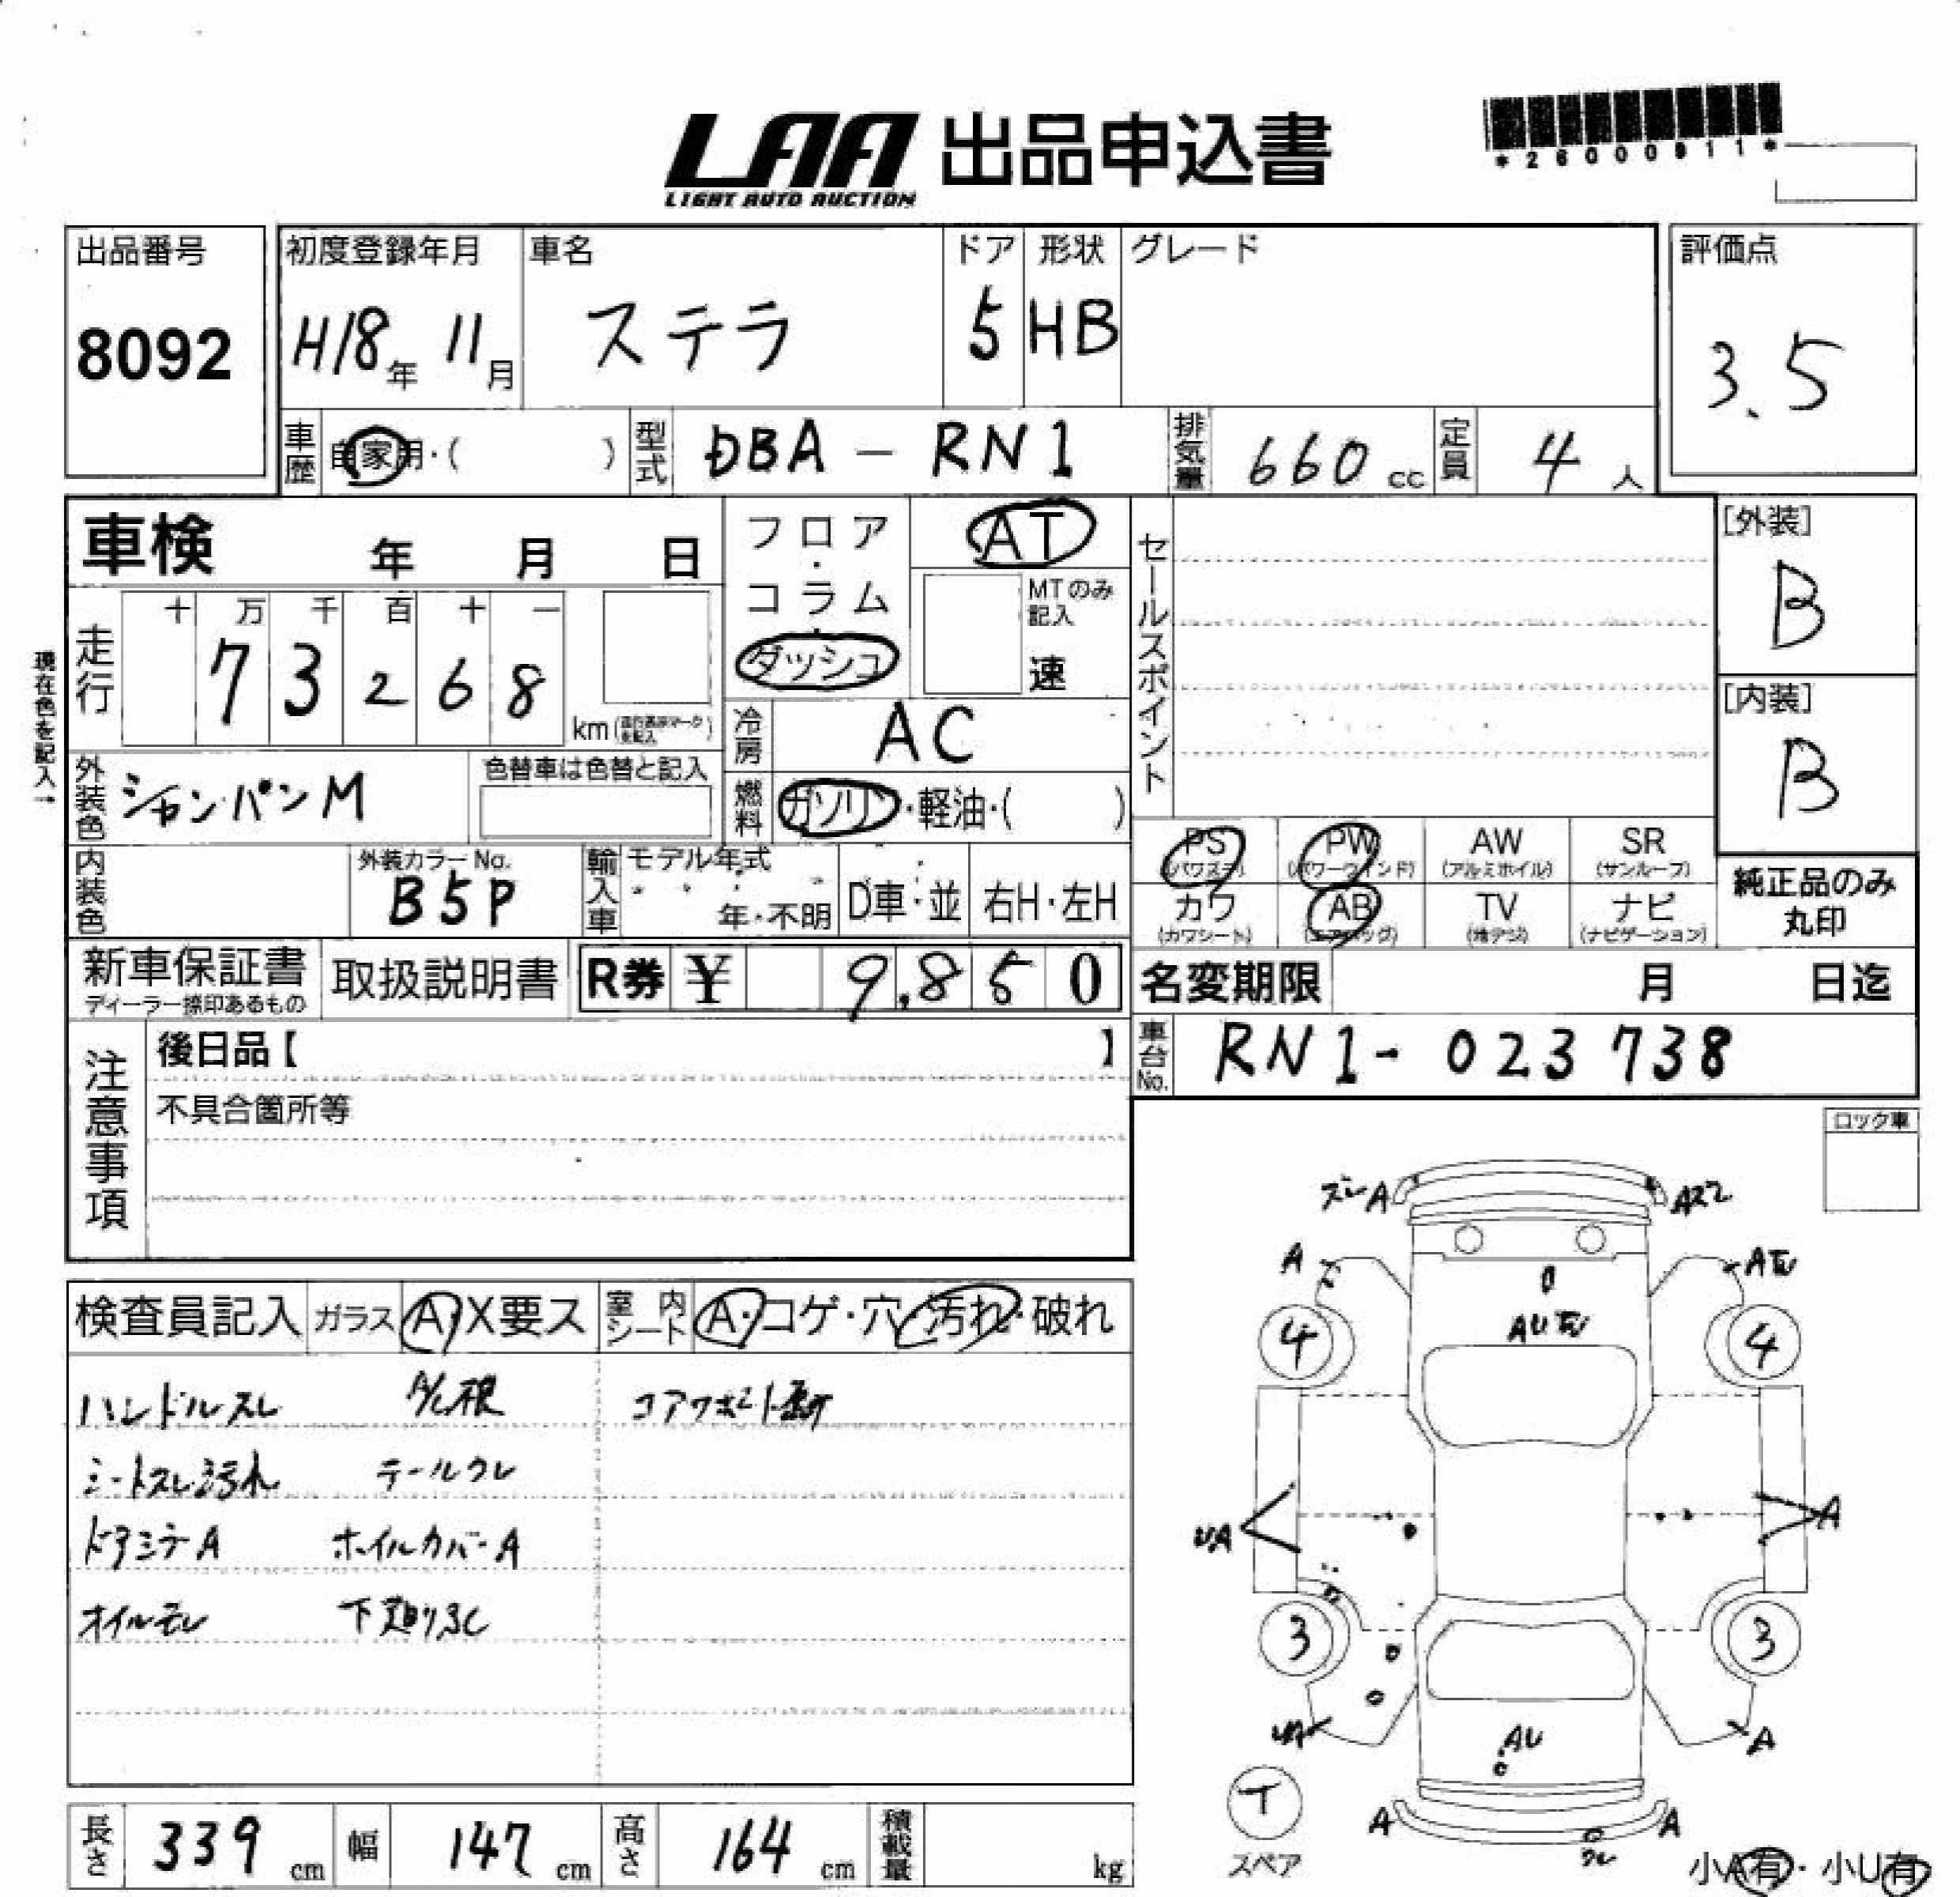 LAA 出品申込書
LIGHT AUTO AUCTION
*26000911*
出品番号 初度登録年月 車名 ドア 形状 グレード 評価点
8092 H18年 11月 ステラ 5 HB 3.5
車歴 自家用・( ) 型式 DBA - RN1 排気量 660 cc 定員 4 人
車検 年 月 日
フロア・コラム・ダッシュ
AT
MTのみ記入
速
セールスポイント
[外装]
B
[内装]
B
現在色を記入→
走行 十 万 千 百 十 一
7 3 2 6 8 km
冷房 AC
外装色 シャンパンM 色替車は色替と記入
燃料 ガソリン・軽油・( )
PS (パワステ) PW (パワーウインド) AW (アルミホイル) SR (サンルーフ)
カワ (カワシート) AB (エアバッグ) TV (地デジ) ナビ (ナビゲーション)
純正品のみ丸印
内装色 外装カラーNo. B5P 輸入車 モデル年式 年・不明 D車・並 右H・左H
新車保証書 ディーラー捺印あるもの 取扱説明書 R券 ¥ 9,850 名変期限 月 日迄
車台No. RN1- 023738
注意事項 後日品【 】
不具合箇所等
ロック車
検査員記入 ガラス A・X要ス 室内シート A・コゲ・穴・汚れ・破れ
ハンドルスレ A/C根
シートスレ汚れ テールワレ
ドアミラーA ホイルカバーA
オイルモレ 下廻りSC
ズレA
Aズレ
A
AU
4 4
UA
A
3 3
UA
AU
A
T
スペア
A
A
ワレ
小A有・小U有
長さ 339 cm 幅 147 cm 高さ 164 cm 積載量 kg